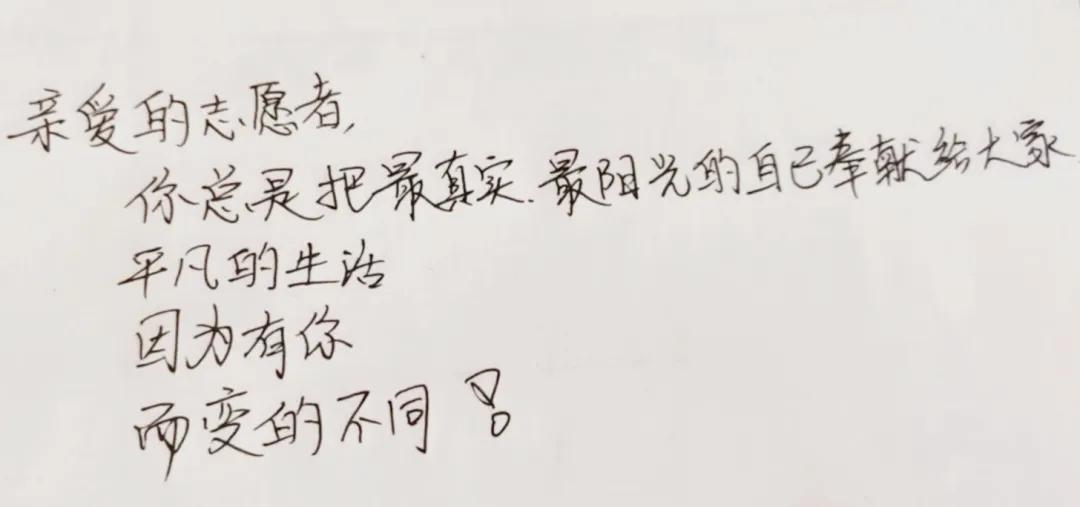 亲爱的志愿者,
你总是把最真实.最阳光的自己奉献给大家
平凡的生活
因为有你
而变的不同!